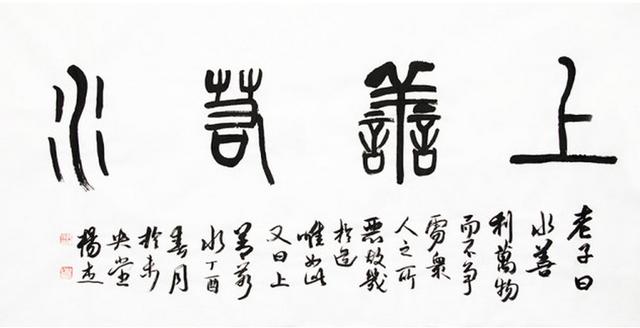 上善若水
老子曰
水善
利萬物
而不爭
處衆
人之所
惡故幾
於道
唯如此
又曰上
善若
水丁酉
春月
於未
央堂
楊